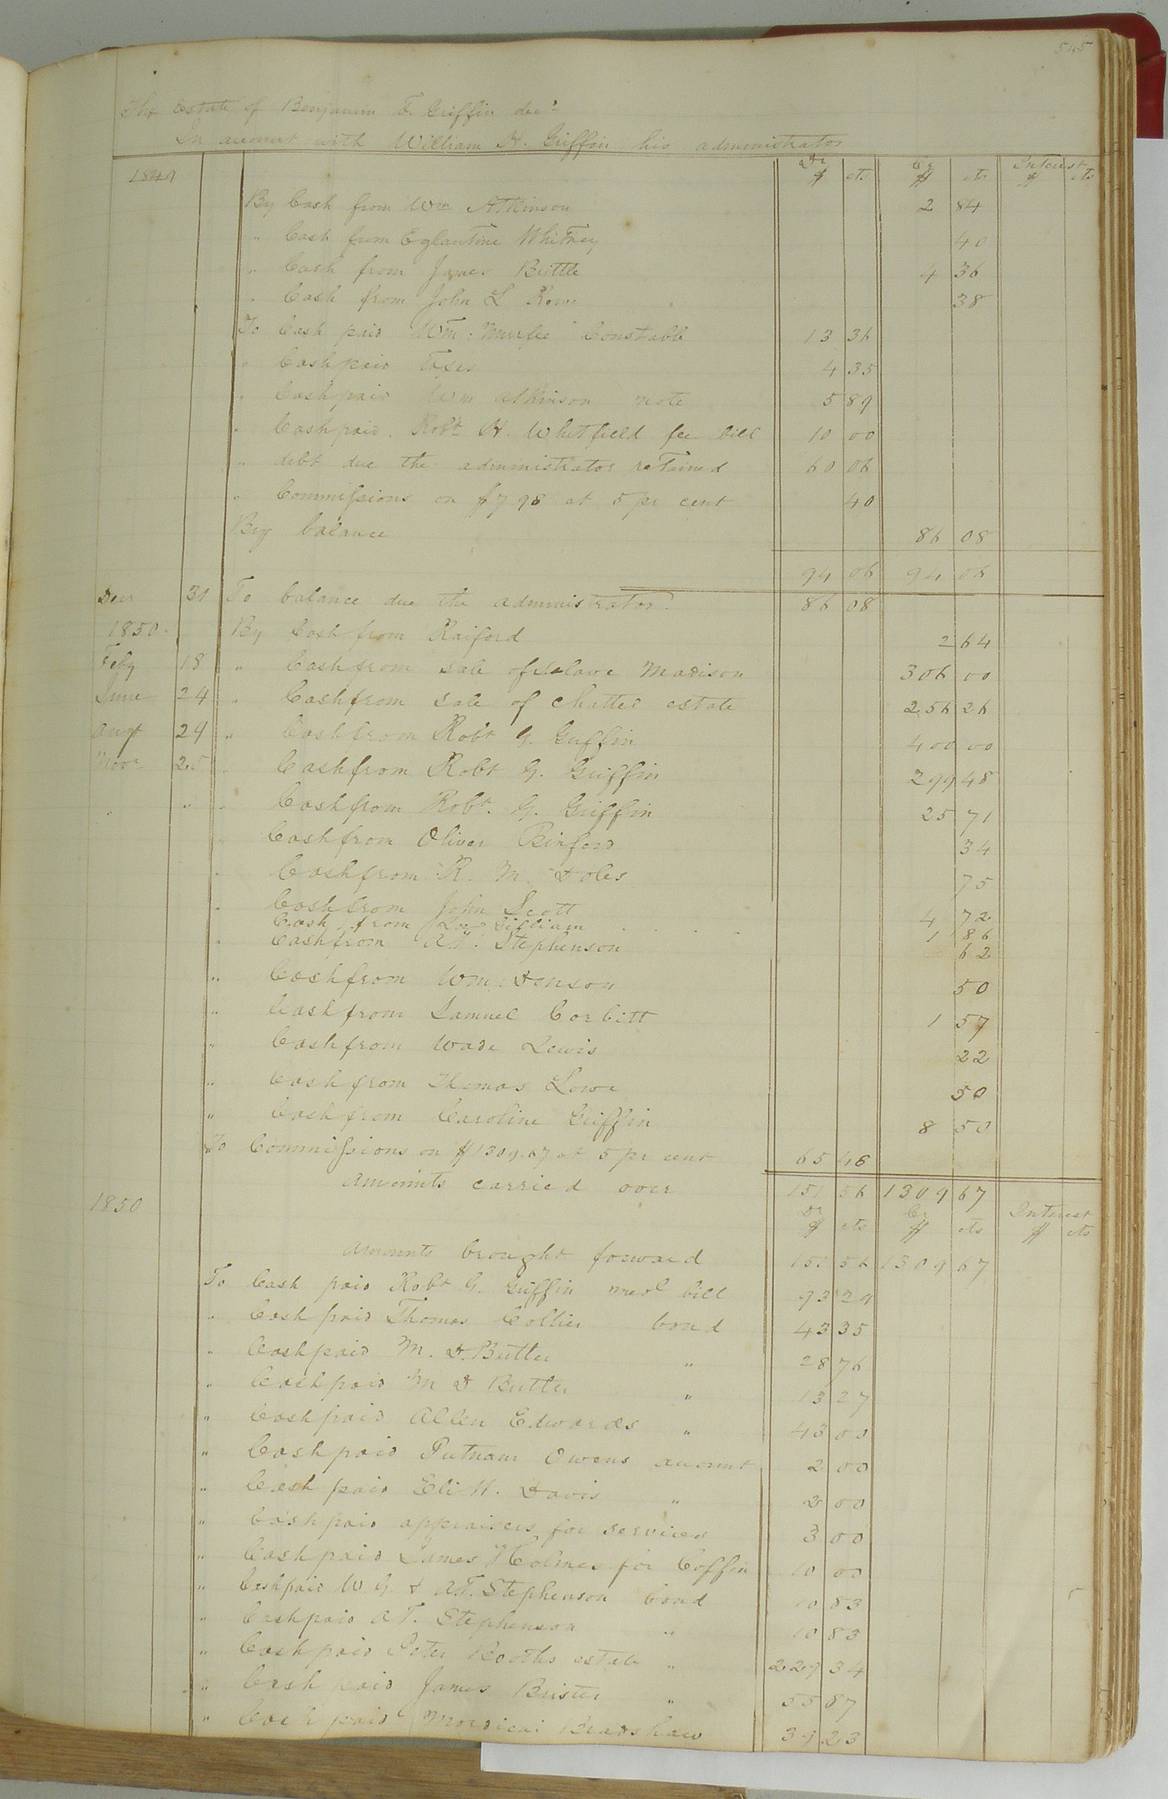 545
The Estate of Benjamin F. Griffin decd
In account with William H. Griffin his administrator
Dr Cr Interest
1849 $ cts $ cts $ cts
By Cash from Wm Atkinson 2 84
" Cash from Eglantine Whitney 40
" Cash from James Buttle 4 36
" Cash from John L Rowe 38
To Cash paid Wm Constable 13 36
" Cash paid Taxes 4 35
" Cash paid Wm Atkinson note 5 89
" Cash paid Robt H. Whitfield fee bill 10 00
" debt due the administrator retained 60 06
" Commissions on $7.98 at 5 pr cent 40
By balance 86 08
94 06 94 06
Decr 31 To balance due the administrator 86 08
1850 By Cash from Raiford 2 64
Feby 18 " Cash from sale of Slave Madison 306 00
June 24 " Cash from sale of Chattel estate 256 26
Augt 29 " Cash from Robt G. Griffin 400 00
Novr 25 " Cash from Robt G. Griffin 299 48
" " " Cash from Robt. G. Griffin 25 71
" Cash from Oliver Binford 34
" Cash from R. M. Doles 75
" Cash from John Scott 4 72
Cash from Gilliam 1 86
" Cash from A.T. Stephenson 62
" Cash from Wm. Denson 50
" Cash from Samuel Corbitt 1 57
" Cash from Wade Lewis 22
" Cash from Thomas Lowe 50
" Cash from Caroline Griffin 8 50
To Commissions on $1309.67 at 5 pr cent 65 48
Amounts carried over 151 56 1309 67
1850 Dr Cr Interest
$ cts $ cts $ cts
Amounts brought forward 151 56 1309 67
To Cash paid Robt G. Griffin merl bill 93 29
" Cash paid Thomas Collier bond 43 35
" Cash paid M. D. Butler " 28 76
" Cash paid M D Butler " 13 27
" Cash paid Allen Edwards " 43 00
" Cash paid Putnam Owens account 2 00
" Cash paid Eli H. Davis " 2 00
" Cash paid appraisers for services 3 00
" Cash paid James Holmes for Coffin 10 00
" Cash paid W. G. & A.T. Stephenson bond 10 83
" Cash paid A T. Stephenson " 10 83
" Cash paid Peter Booths estate " 229 34
" Cash paid James Brister " 55 87
" Cash paid Mordicai Bradshaw 39 23